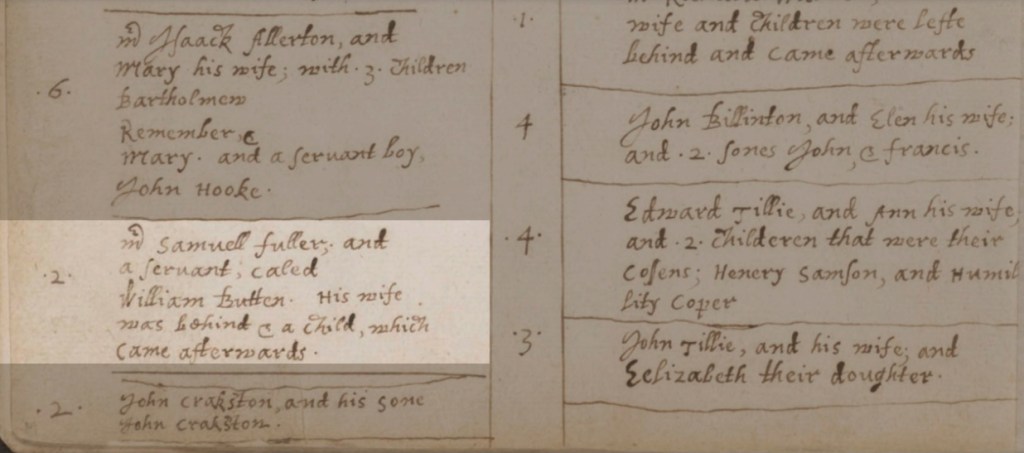 ·6·
mr Isaack Allerton, and
Mary his wife; with ·3· Children
Bartholmew
Remember, &
Mary· and a servant boy,
John Hooke·
·2·
mr Samuell fuller; and
a servant, caled
William Butten· His wife
was behind & a child, which
came afterwards·
·2·
John Crakston, and his sone
John Crakston·
·1·
wife and Children were lefte
behind and came afterwards
4
John Billinton, and Elen his wife;
and ·2· sones John, & francis·
·4·
Edward Tillie, and Ann his wife
and ·2· Childeren that were their
Cosens; Henery Samson, and Humil
lity Coper
·3·
John Tillie, and his wife; and
Eelizabeth their doughter·